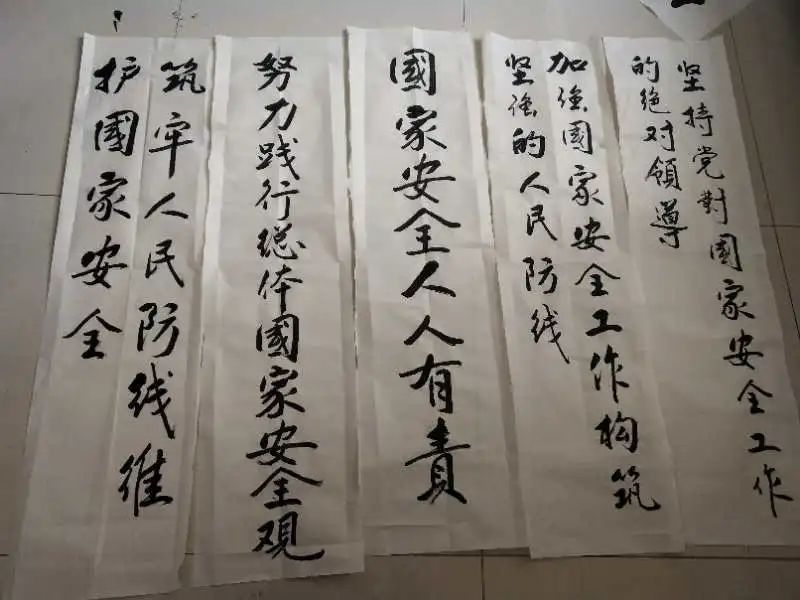 坚持党對国家安全工作
的绝对领導
加强國家安全工作构筑
坚强的人民防线
國家安全人人有責
努力践行总体國家安全观
筑牢人民防线维
护國家安全